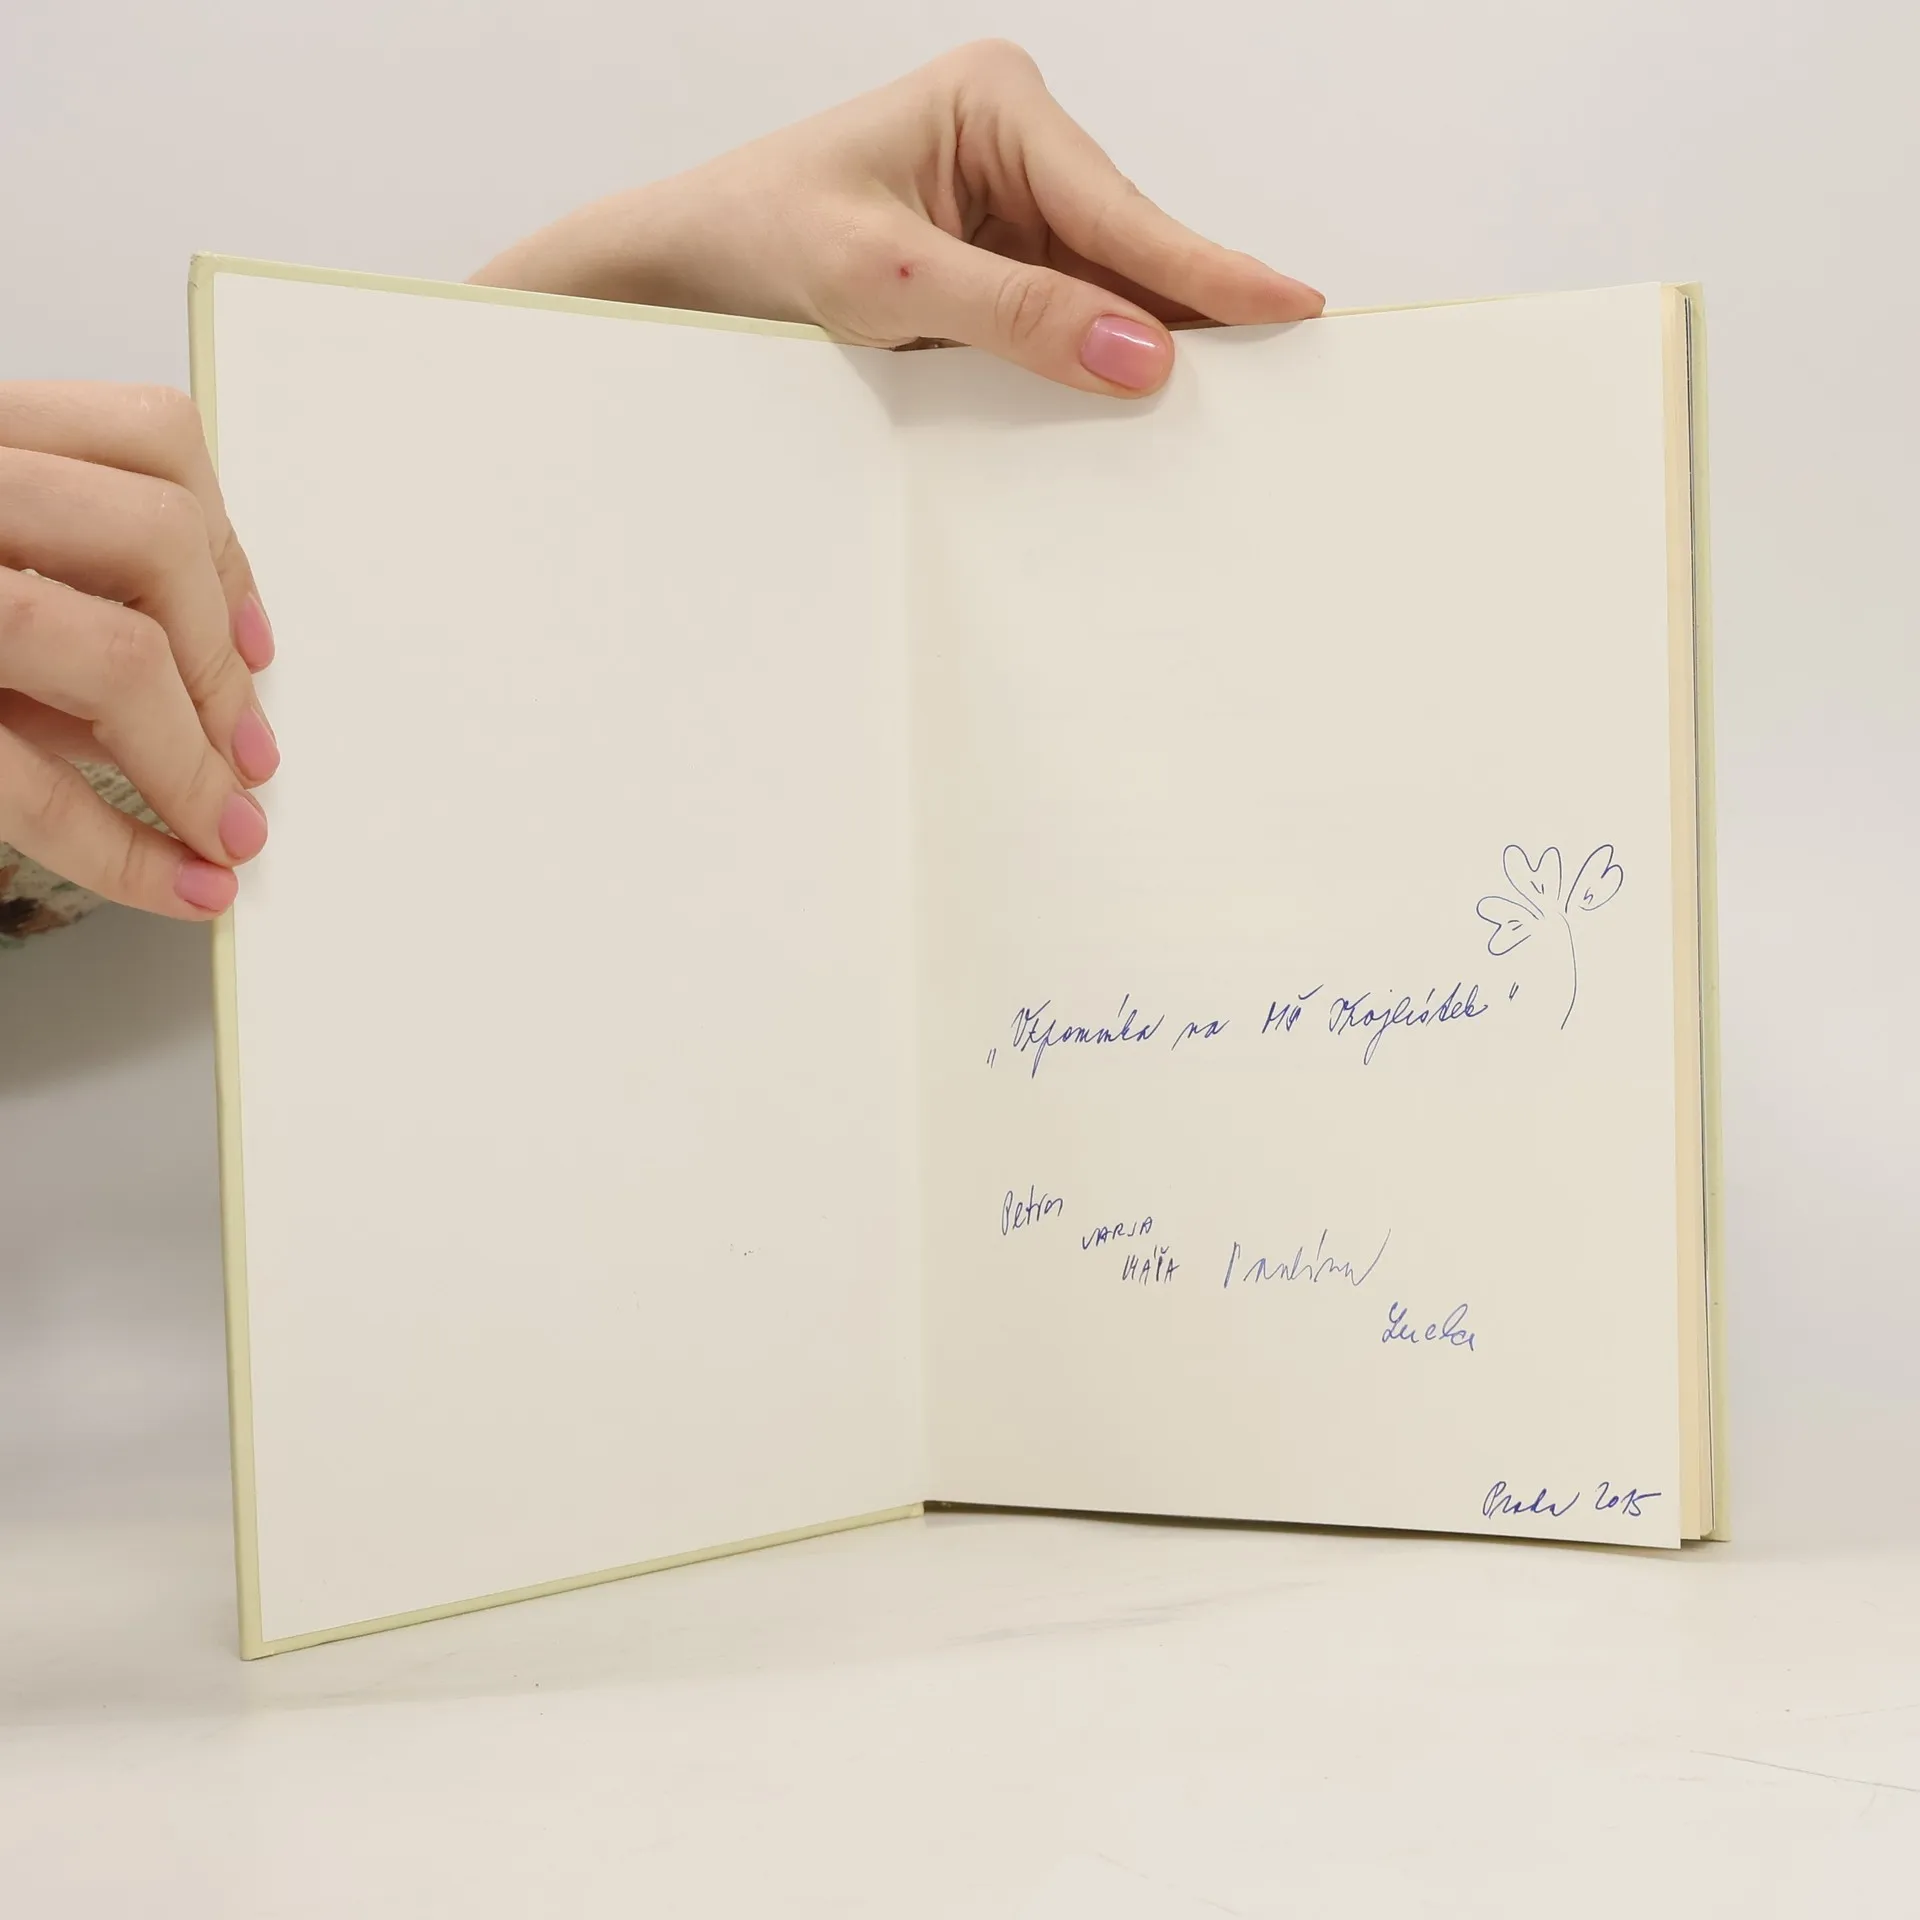 „Vzpomínka na MŠ Trojlístek“
Petra
VARJA
KÁŤA Pavlína
Lucka
Praha 2015